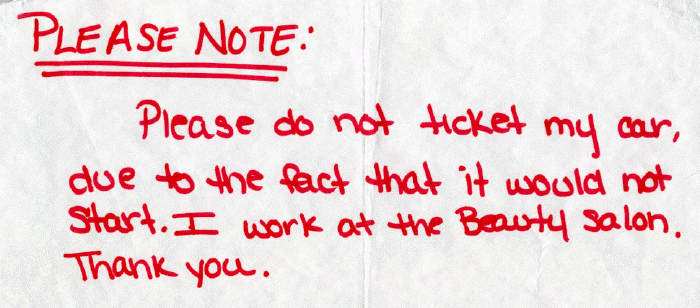 PLEASE NOTE:
Please do not ticket my car,
due to the fact that it would not
Start. I work at the Beauty Salon.
Thank you.